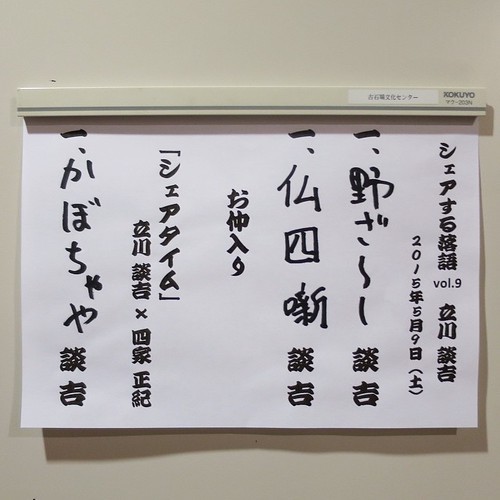 古石場文化センター
KOKUYO
マク-203N
シェアする落語 vol.9 立川 談吉
2015年5月9日（土）
一、野ざらし 談吉
一、仏四噺 談吉
お仲入り
「シェアタイム」
立川 談吉×四家 正紀
一、かぼちゃや 談吉